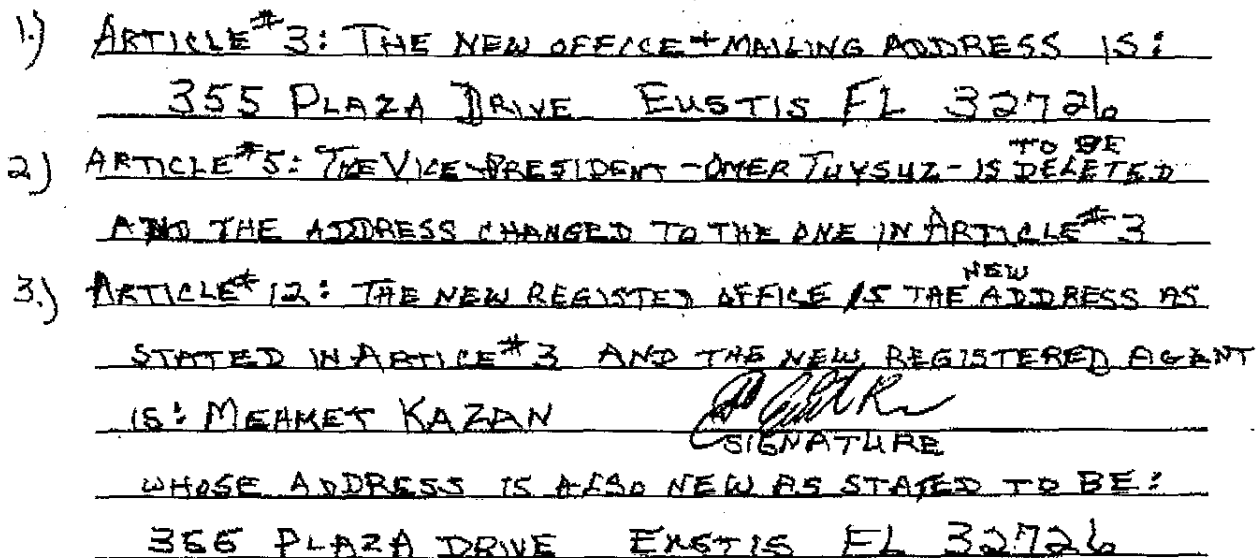 1.) ARTICLE #3: THE NEW OFFICE + MAILING ADDRESS IS:
355 PLAZA DRIVE EUSTIS FL 32726
2) ARTICLE #5: THE VICE-PRESIDENT - OMER TUYSUZ - IS TO BE DELETED
AND THE ADDRESS CHANGED TO THE ONE IN ARTICLE #3
3.) ARTICLE #12: THE NEW REGISTED OFFICE IS THE NEW ADDRESS AS
STATED IN ARTICE #3 AND THE NEW REGISTERED AGENT
IS: MEHMET KAZAN
SIGNATURE
WHOSE ADDRESS IS ALSO NEW AS STATED TO BE:
355 PLAZA DRIVE EUSTIS FL 32726